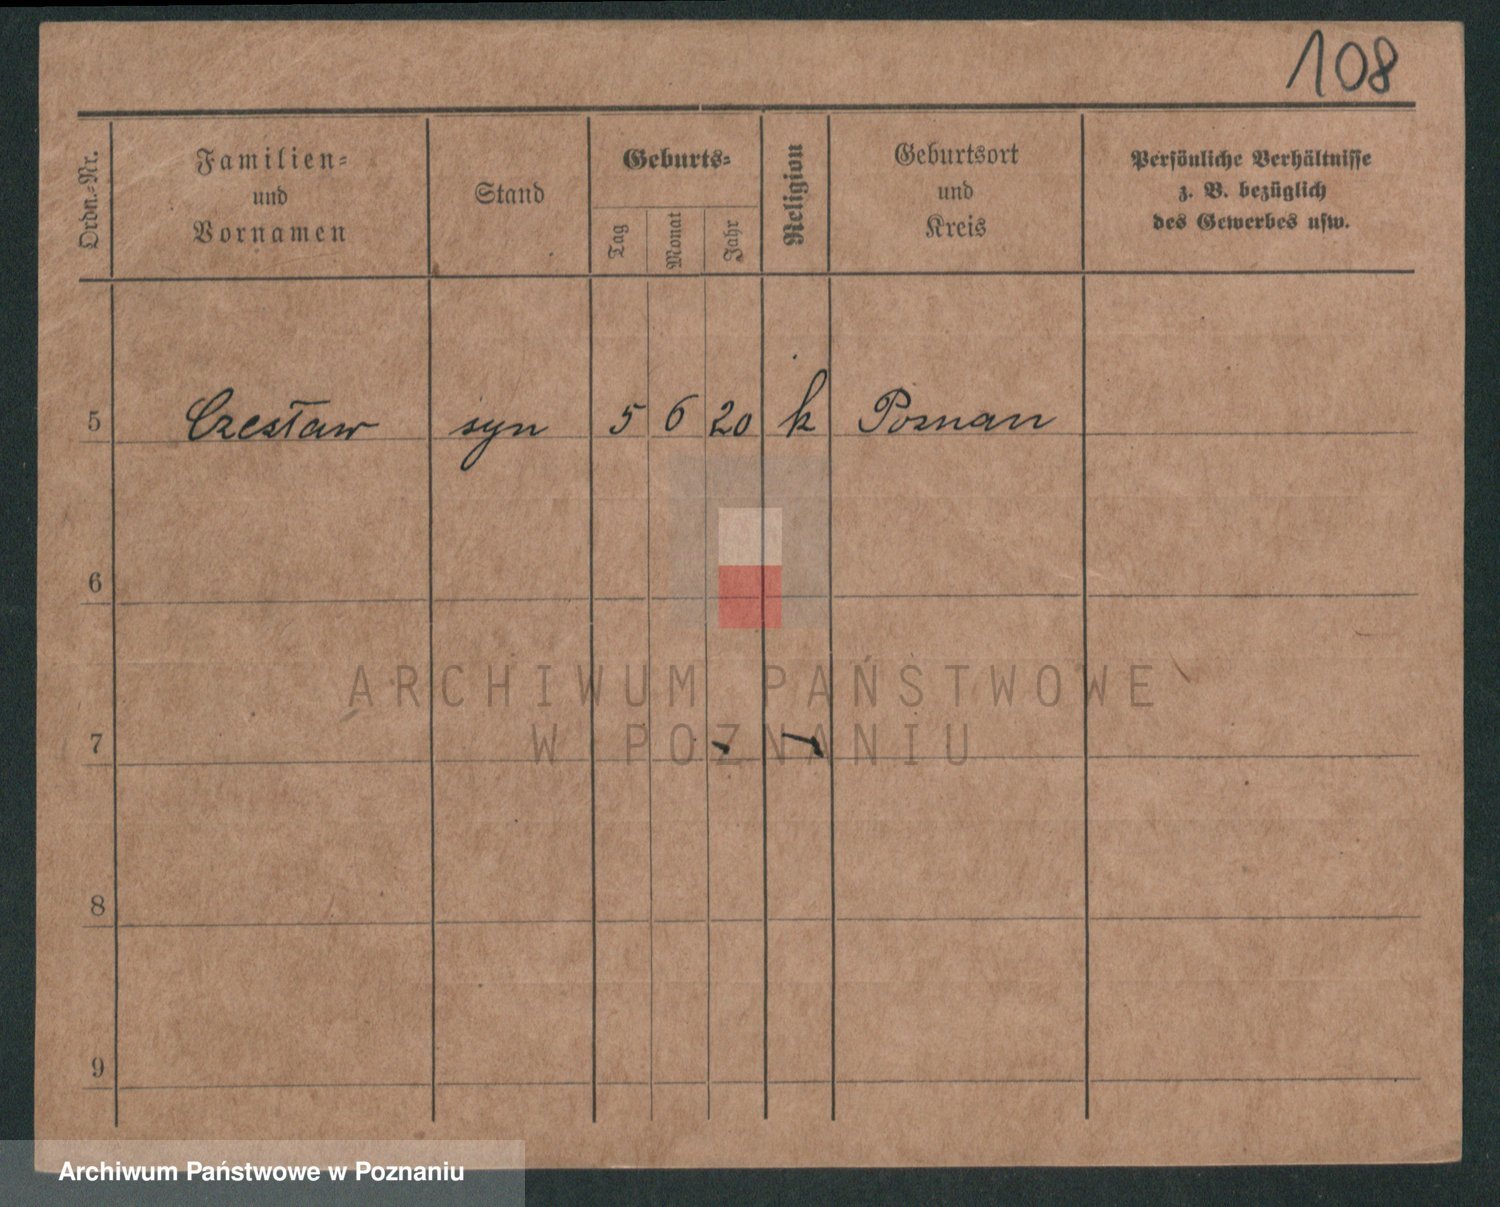 108
Ordn.-Nr.
Familien-
und
Vornamen
Stand
Geburts-
Tag
Monat
Jahr
Religion
Geburtsort
und
Kreis
Persönliche Verhältnisse
z. B. bezüglich
des Gewerbes usw.
5 Czesław syn 5 6 20 k Poznan
6
7
8
9
ARCHIWUM PAŃSTWOWE
W POZNANIU
Archiwum Państwowe w Poznaniu